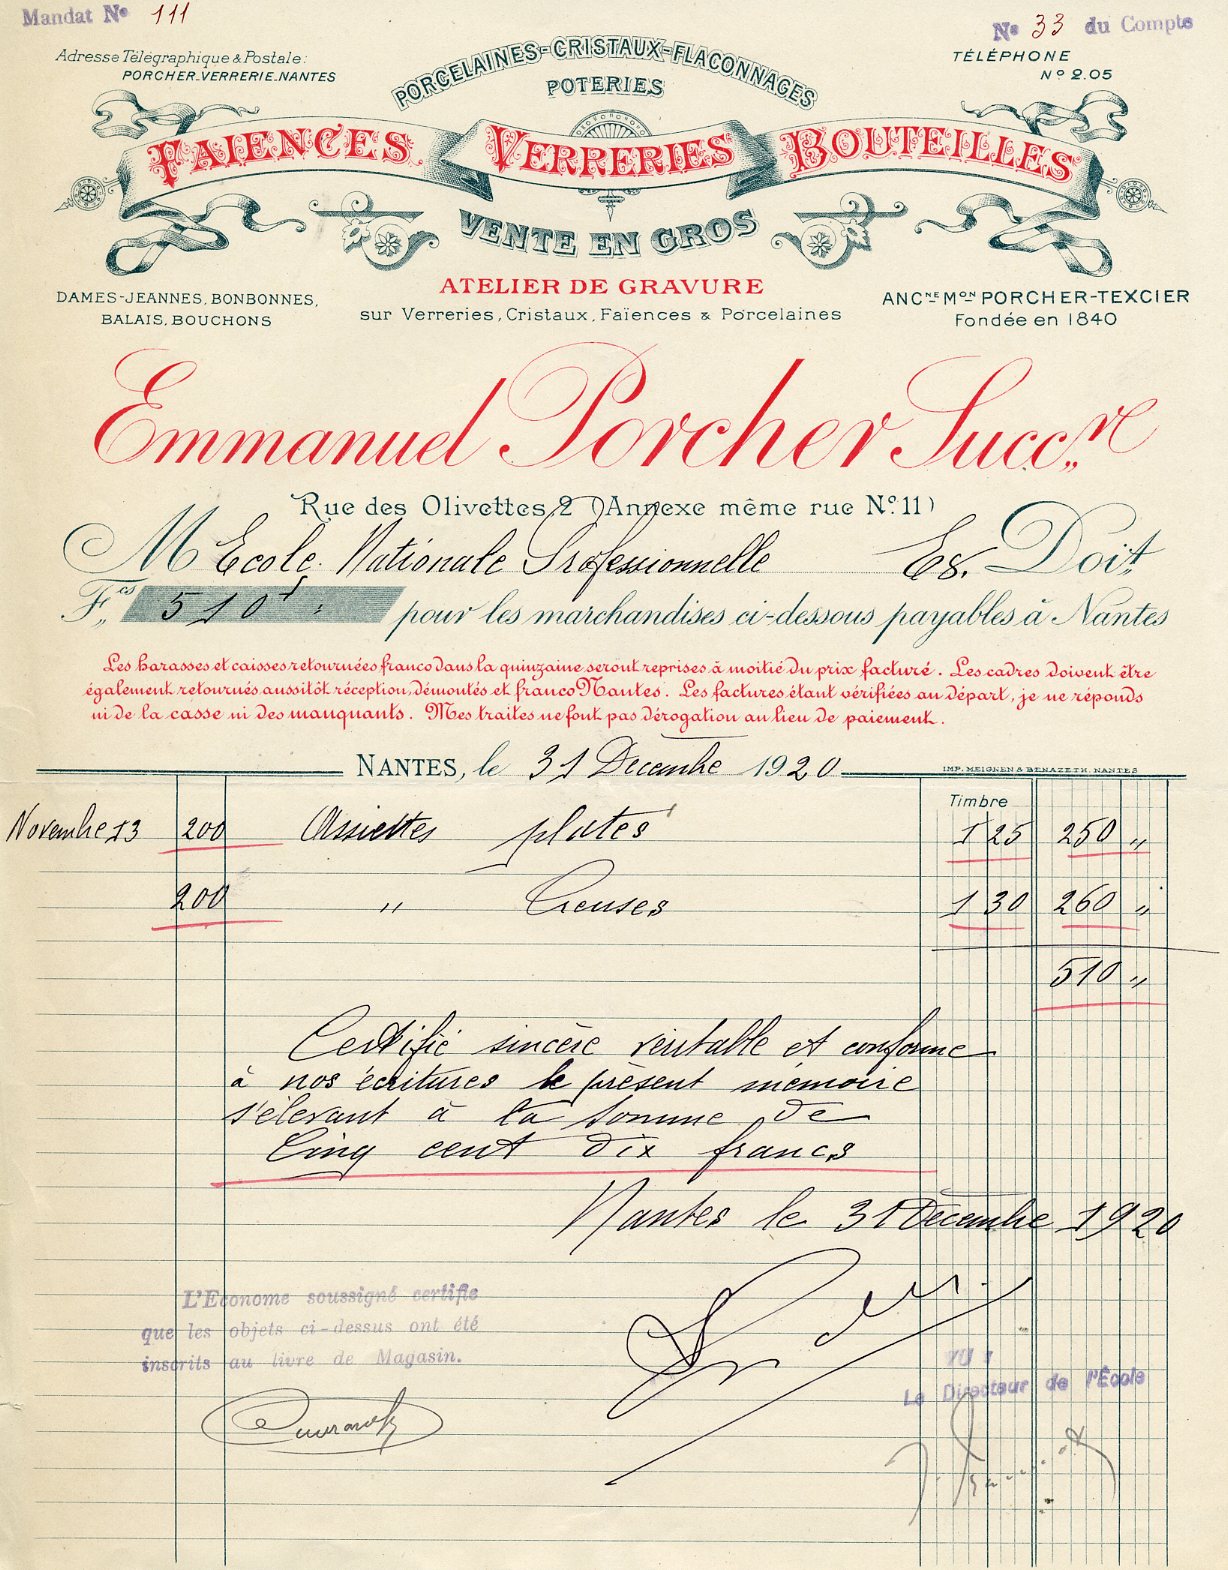 Mandat No 111
No 33 du Compte
Adresse Télégraphique & Postale:
PORCHER.VERRERIE.NANTES
PORCELAINES-CRISTAUX-FLACONNAGES
POTERIES
TÉLÉPHONE
No 2.05
FAIENCES. VERRERIES BOUTEILLES
VENTE EN GROS
DAMES-JEANNES, BONBONNES,
BALAIS, BOUCHONS
ATELIER DE GRAVURE
sur Verreries, Cristaux, Faïences & Porcelaines
ANCNE MON PORCHER-TEXCIER
Fondée en 1840
Emmanuel Porcher Succr
Rue des Olivettes 2 (Annexe même rue No 11)
M Ecole Nationale Professionnelle Es. Doit
Fcs 510f pour les marchandises ci-dessous payables à Nantes
Les harasses et caisses retournées franco dans la quinzaine seront reprises à moitié du prix facturé. Les cadres doivent être
également retournés aussitôt réception, démoutés et franco Nantes. Les factures étant vérifiées au départ, je ne réponds
ni de la casse ni des manquants. Mes traites ne font pas dérogation au lieu de paiement.
NANTES, le 31 Decembre 1920
IMP. MEIGNEN & BENAZETH. NANTES
Timbre
Novembre 13 200 Assiettes plates 1 25 250 "
200 " Creuses 1 30 260 "
510 "
Certifié sincère véritable et conforme
à nos écritures le présent mémoire
s'élevant à la somme de
Cinq cent dix francs
Nantes le 31 Decembre 1920
L'Econome soussigné certifie
que les objets ci-dessus ont été
inscrits au livre de Magasin.
VU :
Le Directeur de l'École